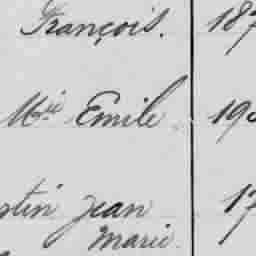 François. 187
Mie Emile 190
stin Jean 17
Marie